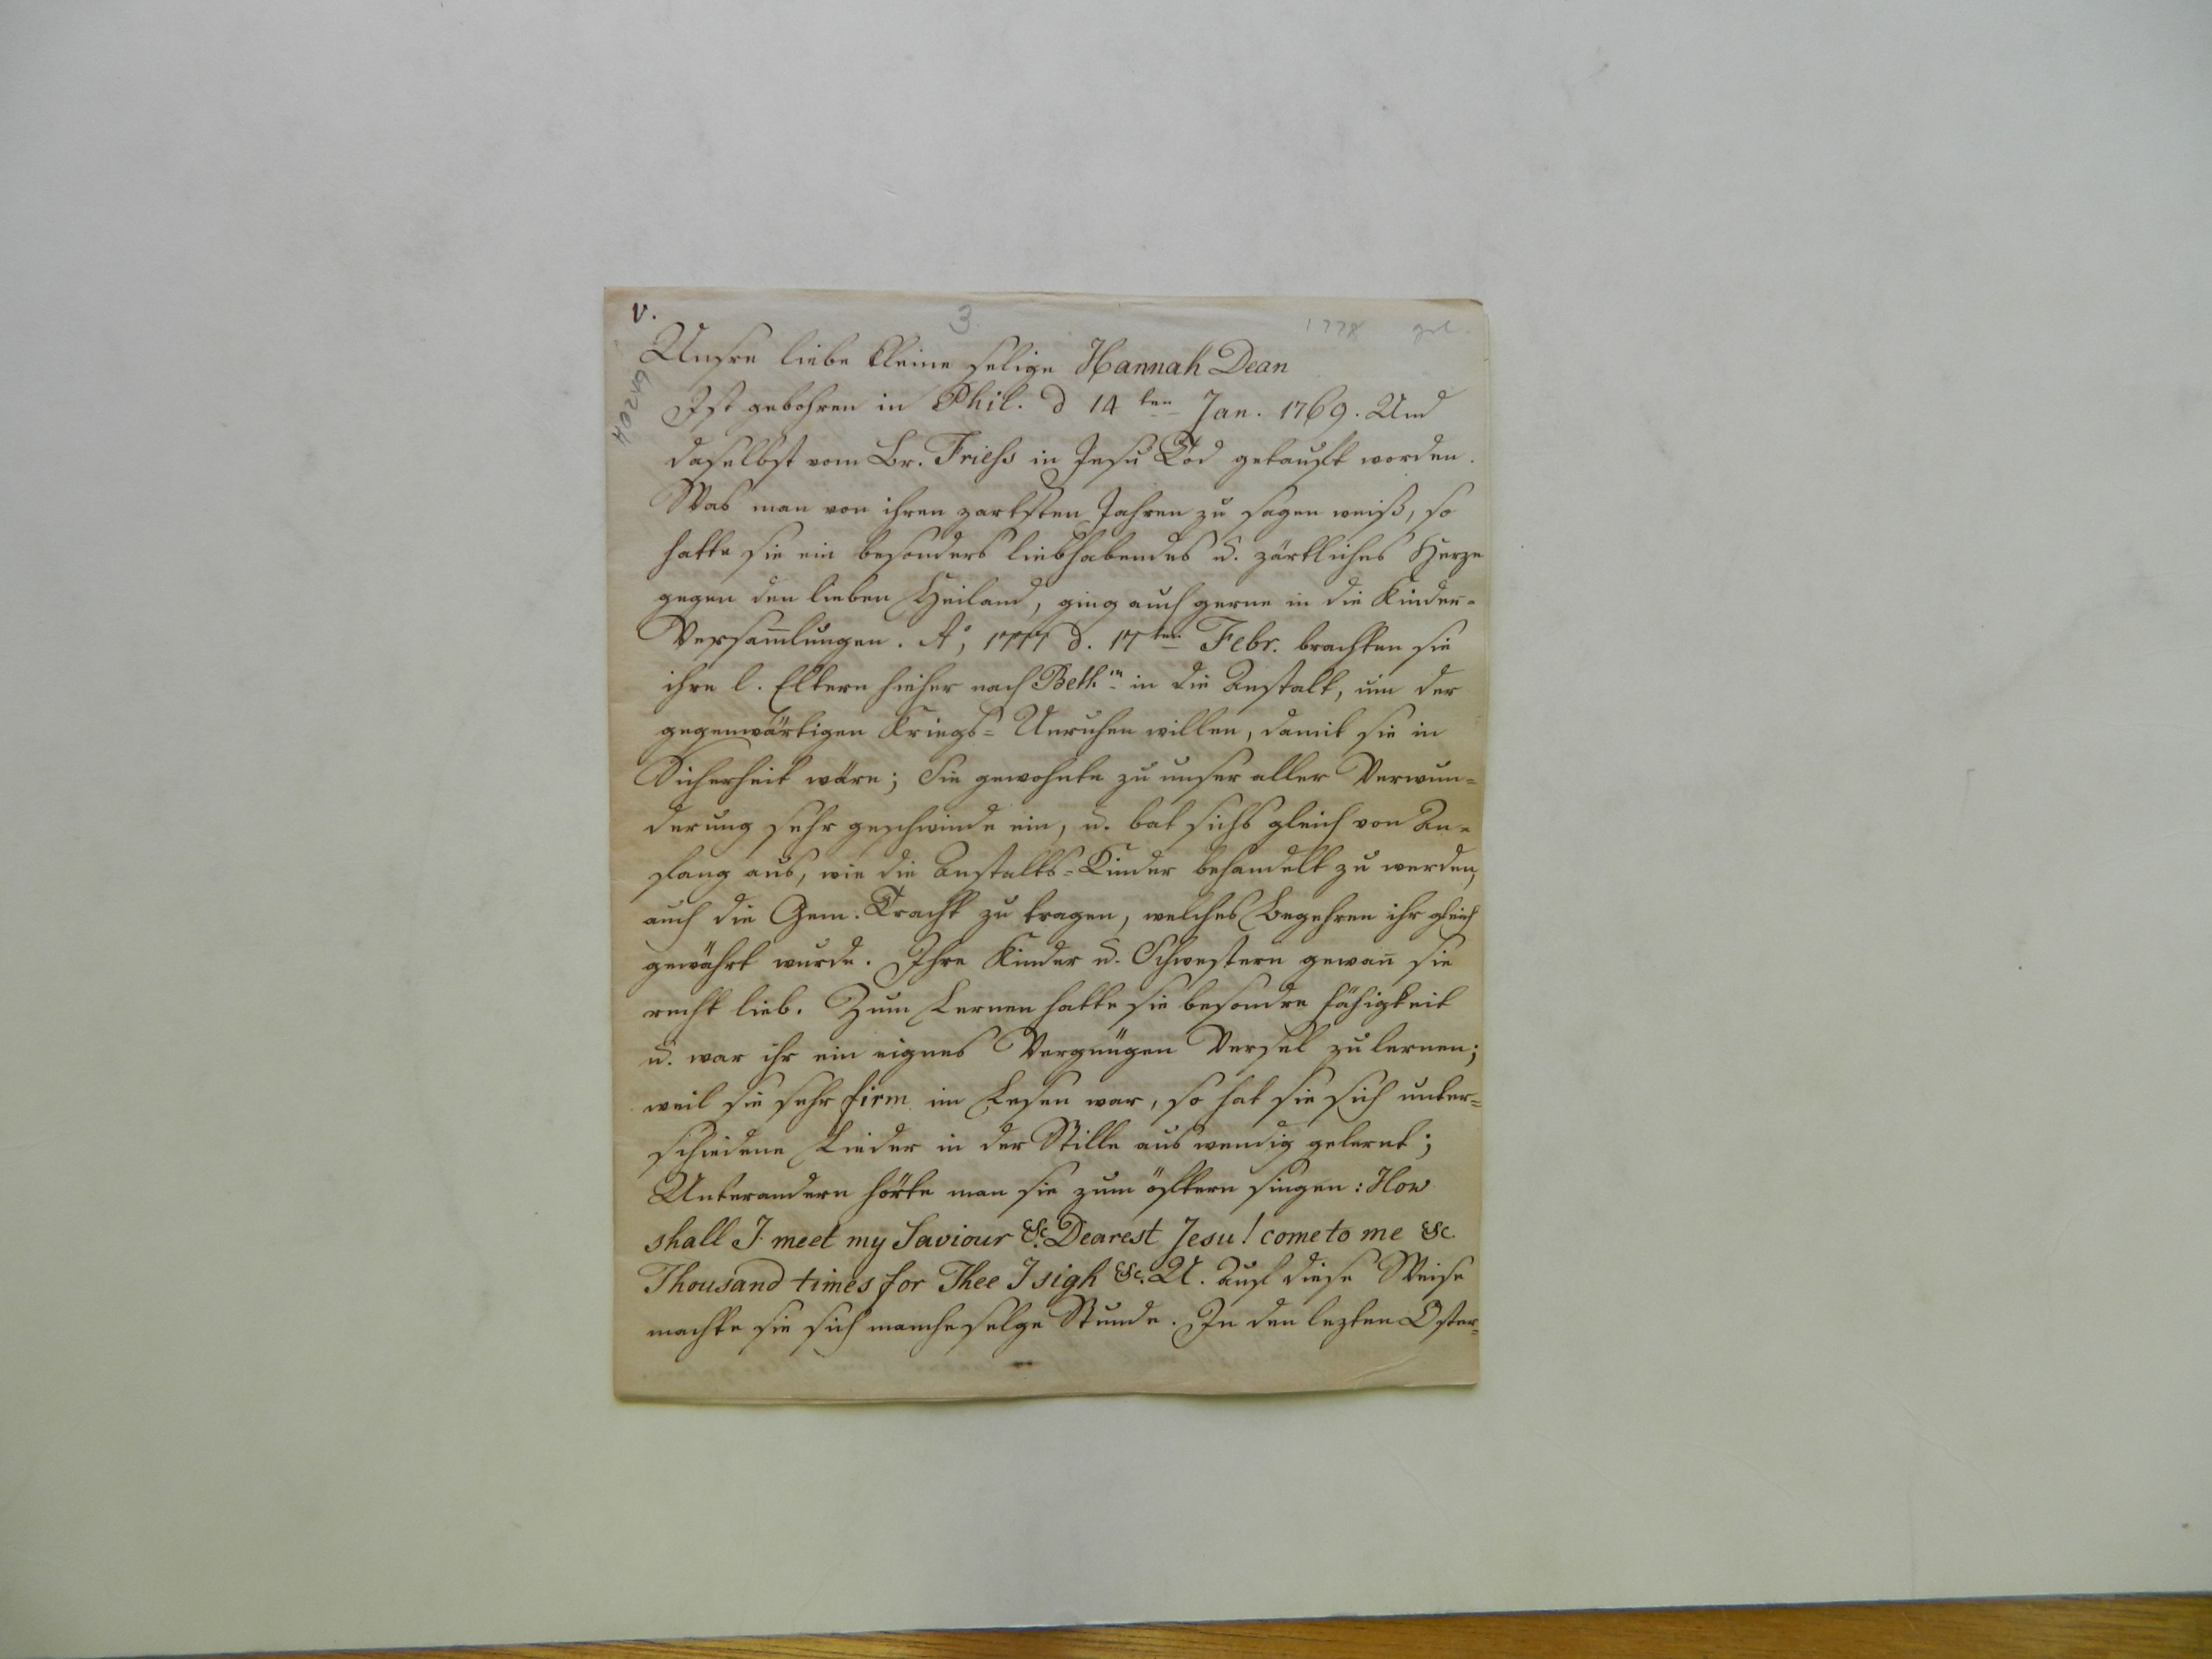 v.
3.
1778
Unsre liebe kleine selige Hannah Dean
Ist gebohren in Phil. d 14ten Jan. 1769. Und
daselbst vom Br. Friess in Jesu Tod getauft worden.
Was man von ihren zartsten Jahren zu sagen weiß, so
hatte sie ein besonders liebhabendes u. zärtliches Herze
gegen den lieben Heiland, ging auch gerne in die Kinder-
Versam̅lungen. Ao, 1777 d. 17ten Febr. brachten sie
ihre l. Eltern hieher nach Bethm in die Anstalt, um der
gegenwärtigen Kriegs= Unruhen willen, damit sie in
Sicherheit wäre; Sie gewohnte zu unser aller Verwun=
derung sehr geschwinde ein, u. bat sichs gleich von An=
fang aus, wie die Anstalts=Kinder behandelt zu werden,
auch die Gem. Tracht zu tragen, welches Begehren ihr gleich
gewährt wurde. Ihre Kinder u. Schwestern gewan̅ sie
recht lieb. Zum Lernen hatte sie besondre Fähigkeit
u. war ihr ein eignes Vergnügen Versel zu lernen;
weil sie sehr firm im Lesen war, so hat sie sich unter=
schiedene Lieder in der Stille auswendig gelernt;
Unterandern hörte man sie zum öftern singen: How
shall I meet my Saviour &c. Dearest Jesu! come to me &c.
Thousand times for Thee I sigh &c. U. auf diese Weise
machte sie sich manche selge Stunde. In den lezten Oster=